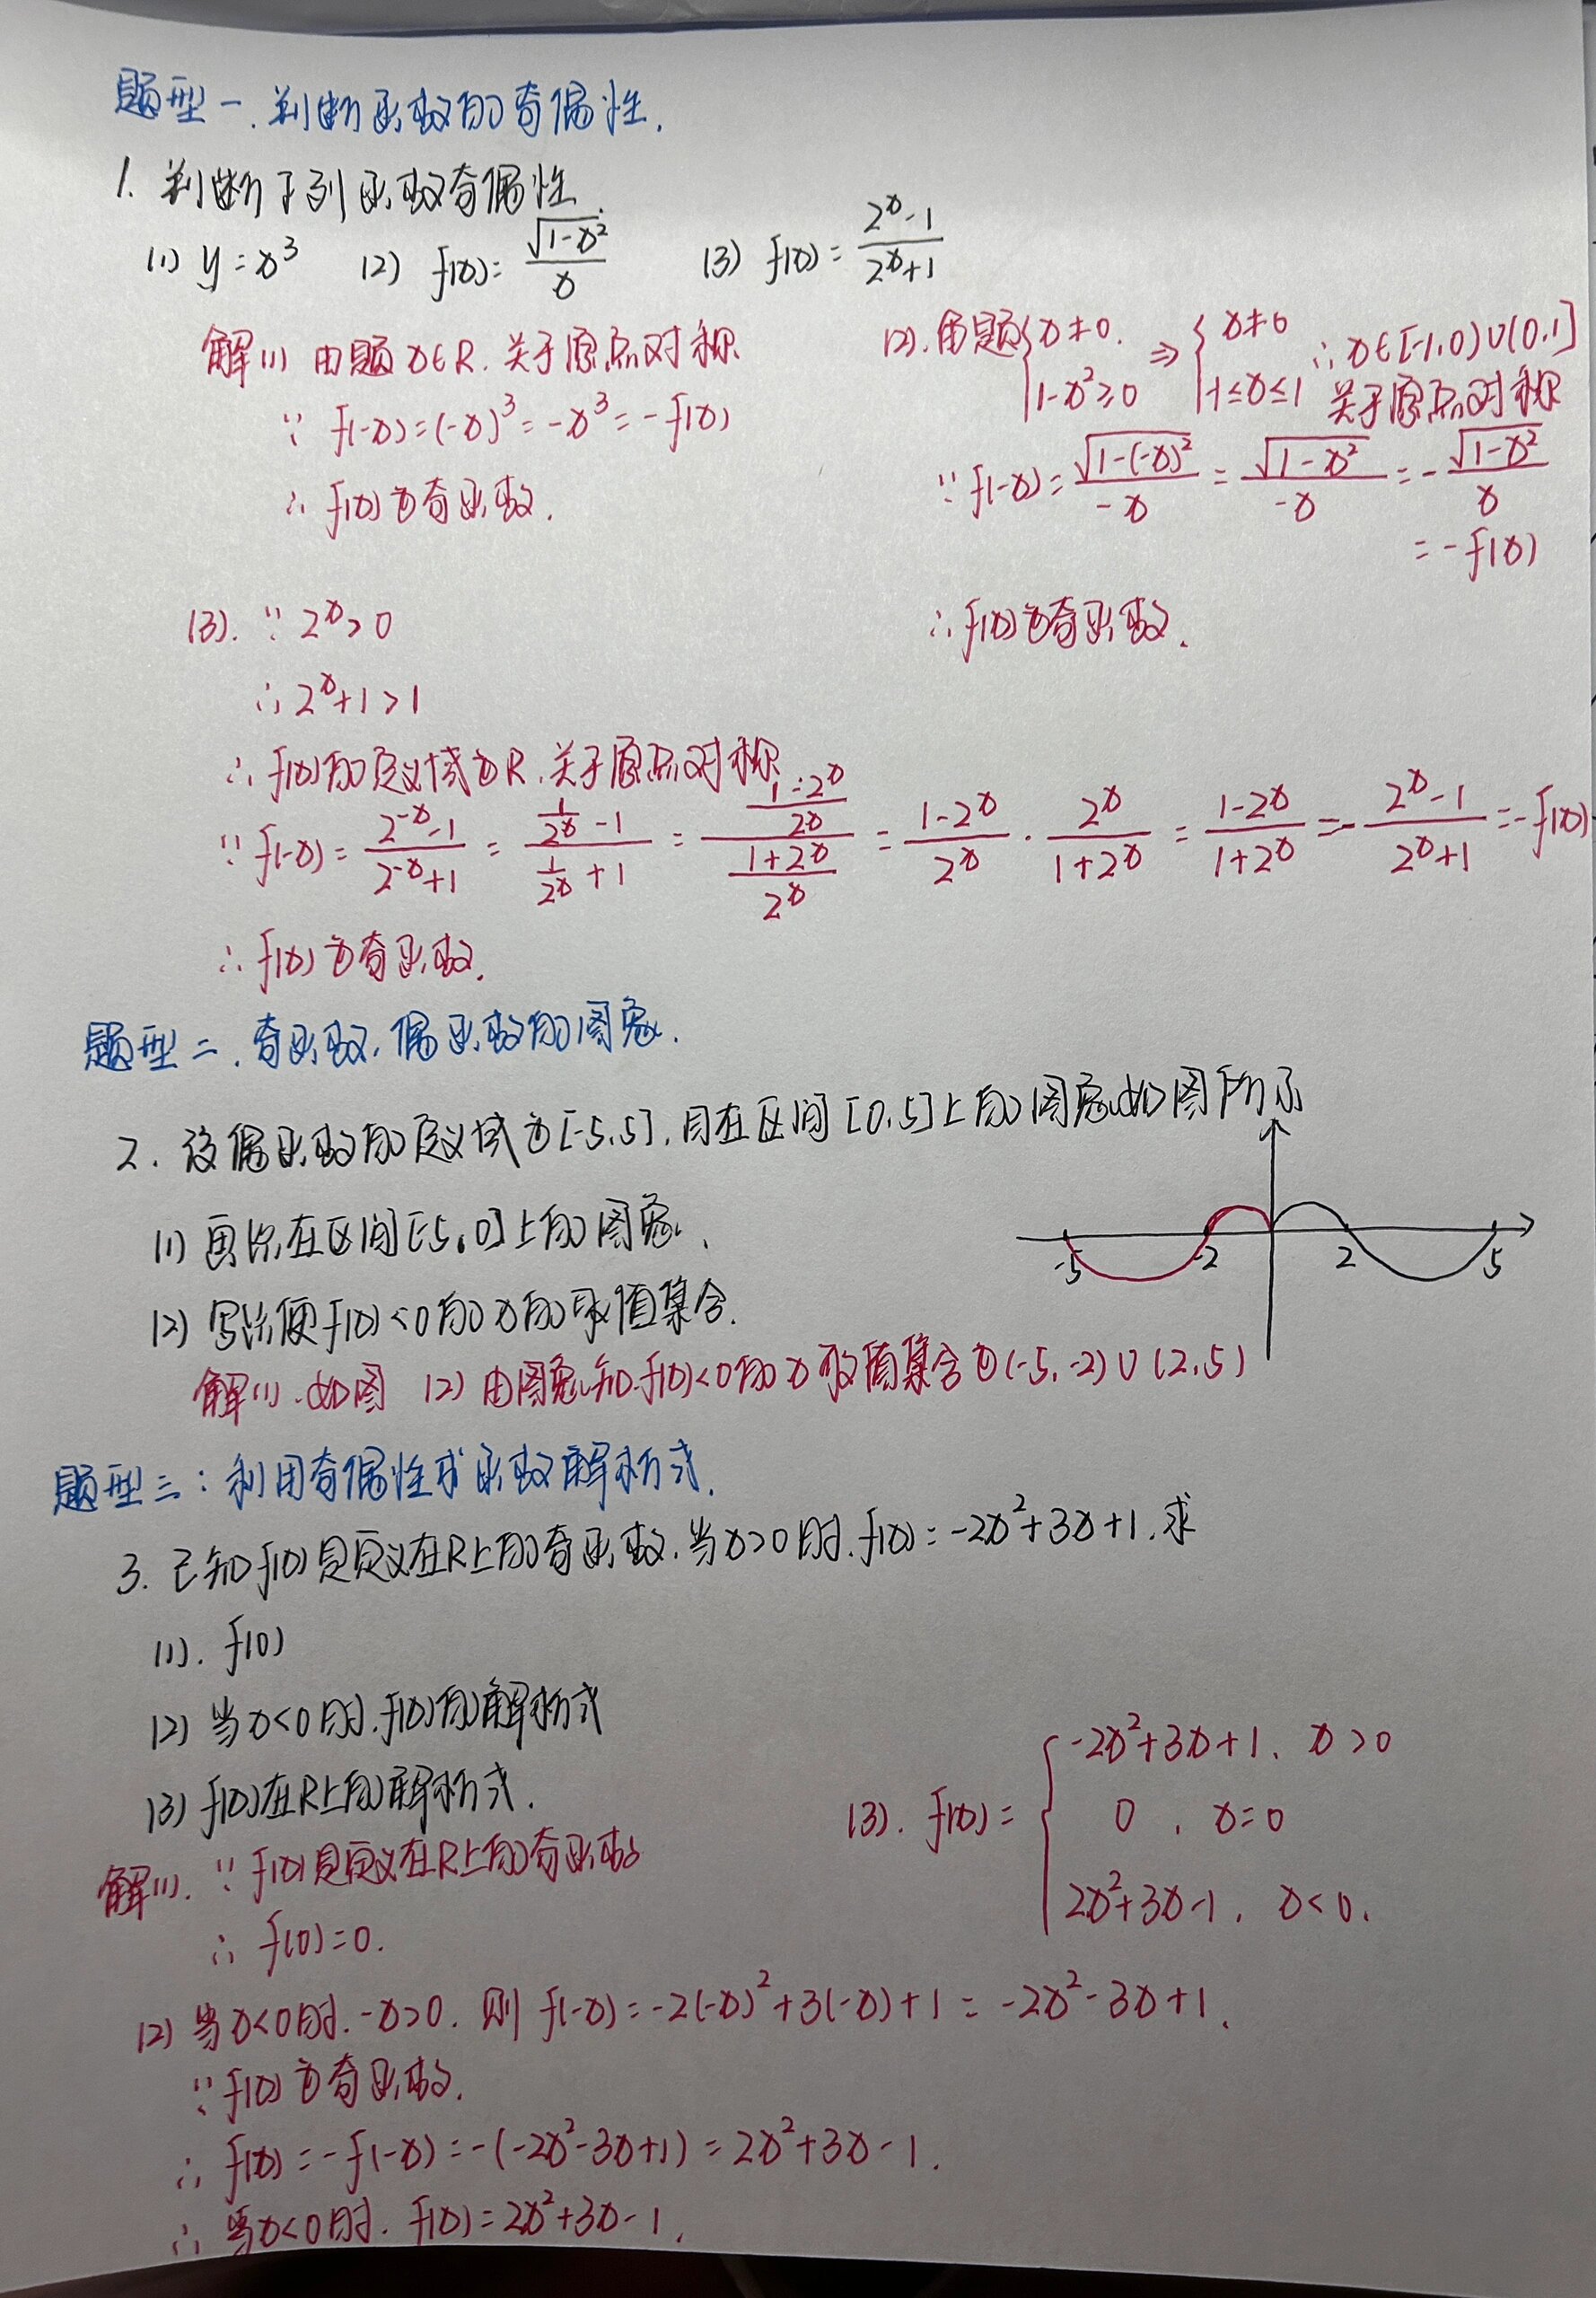 题型一.判断函数的奇偶性.
1. 判断下列函数奇偶性.
(1) y=x³ (2) f(x)=√(1-x²)/x (3) f(x)=(2^x-1)/(2^x+1)
解(1) 由题x∈R.关于原点对称
∵ f(-x)=(-x)³=-x³=-f(x)
∴ f(x)为奇函数.
(2).由题{x≠0. 1-x²≥0 ⇒ {x≠0 -1≤x≤1 ∴x∈[-1,0)∪(0,1]
关于原点对称
∵f(-x)=√(1-(-x)²)/(-x)=√(1-x²)/(-x)=-√(1-x²)/x
=-f(x)
∴f(x)为奇函数.
(3). ∵2^x>0
∴2^x+1>1
∴f(x)的定义域为R.关于原点对称
∵f(-x)=(2^(-x)-1)/(2^(-x)+1)=(1/2^x-1)/(1/2^x+1)=((1-2^x)/2^x)/((1+2^x)/2^x)=(1-2^x)/2^x·2^x/(1+2^x)=(1-2^x)/(1+2^x)=-(2^x-1)/(2^x+1)=-f(x)
∴f(x)为奇函数.
题型二.奇函数,偶函数的图象.
2. 设偶函数的定义域为[-5,5],且在区间[0,5]上的图象如图所示
(1) 画出在区间[-5,0]上的图象.
(2) 写出使f(x)<0的x的取值集合.
-5 -2 2 5
解(1).如图 (2) 由图象知.f(x)<0的x取值集合为(-5,-2)∪(2,5)
题型三:利用奇偶性求函数解析式.
3. 已知f(x)是定义在R上的奇函数.当x>0时.f(x)=-2x²+3x+1.求
(1). f(0)
(2) 当x<0时.f(x)的解析式
(3) f(x)在R上的解析式.
解(1). ∵f(x)是定义在R上的奇函数
∴ f(0)=0.
(2) 当x<0时.-x>0. 则 f(-x)=-2(-x)²+3(-x)+1=-2x²-3x+1.
∵f(x)为奇函数.
∴ f(x)=-f(-x)=-(-2x²-3x+1)=2x²+3x-1.
∴ 当x<0时. f(x)=2x²+3x-1.
(3). f(x)={-2x²+3x+1, x>0
0 , x=0
2x²+3x-1, x<0.